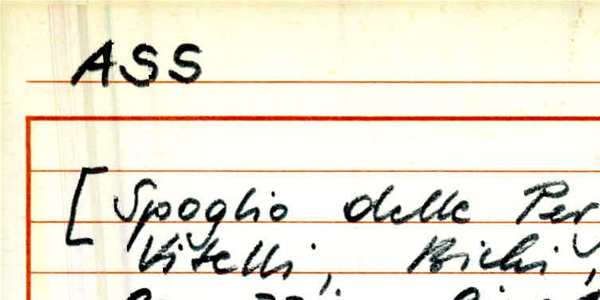 ASS
[Spoglio delle Per
Vitelli, Bichi,